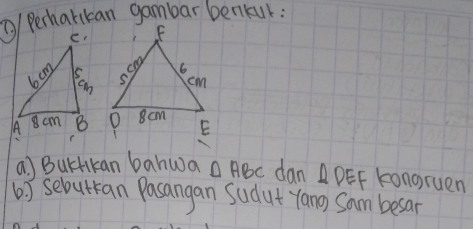 1) Perhatikan gambar berikut:
C.
F
6 cm
5 cm
5 cm
6 cm
A 8 cm B
D 8 cm E
a.) Buktikan bahwa Δ ABC dan Δ DEF kongruen
b.) Sebutkan Pasangan Sudut Yang Sam besar